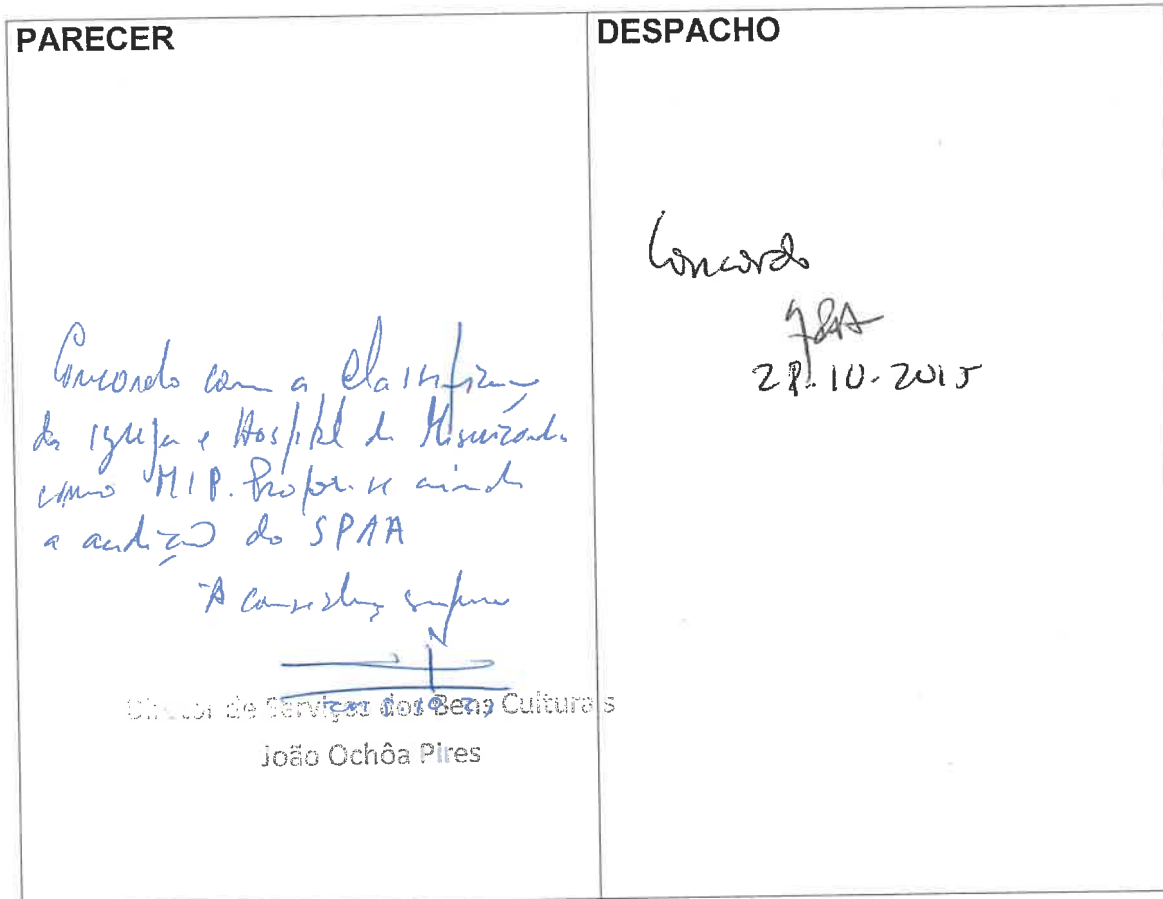 PARECER
Concordo com a classificação
da Igreja e Hospital da Misericórdia
como MIP. Propõe-se ainda
a audição do SPAA
À consideração superior
Diretor de Serviços dos Bens Culturais
João Ochôa Pires
DESPACHO
Concordo
28.10.2015